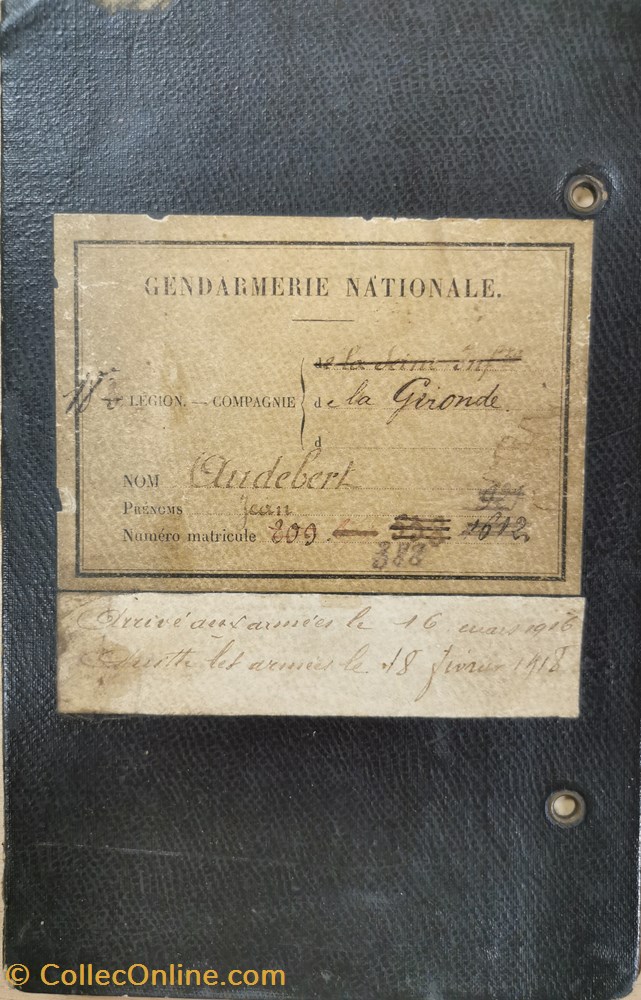 GENDARMERIE NATIONALE.
de la Seine Infre
18e LÉGION. — COMPAGNIE de la Gironde.
d
NOM Audebert
PRÉNOMS Jean
Numéro matricule 209 1612
388
Arrivé aux armées le 16 mars 1916
Quitté les armées le 18 février 1918
© CollecOnline.com